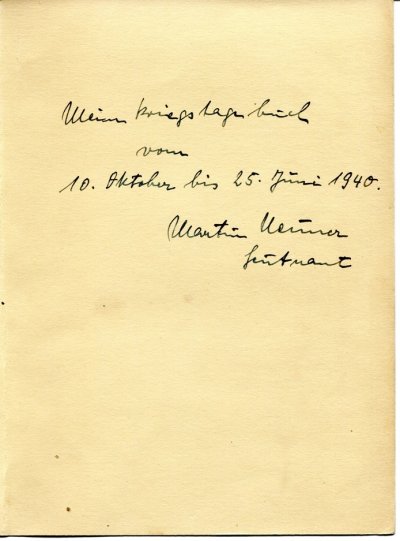 Mein Kriegstagebuch
vom
10. Oktober bis 25. Juni 1940.
Martin Neuner
Leutnant